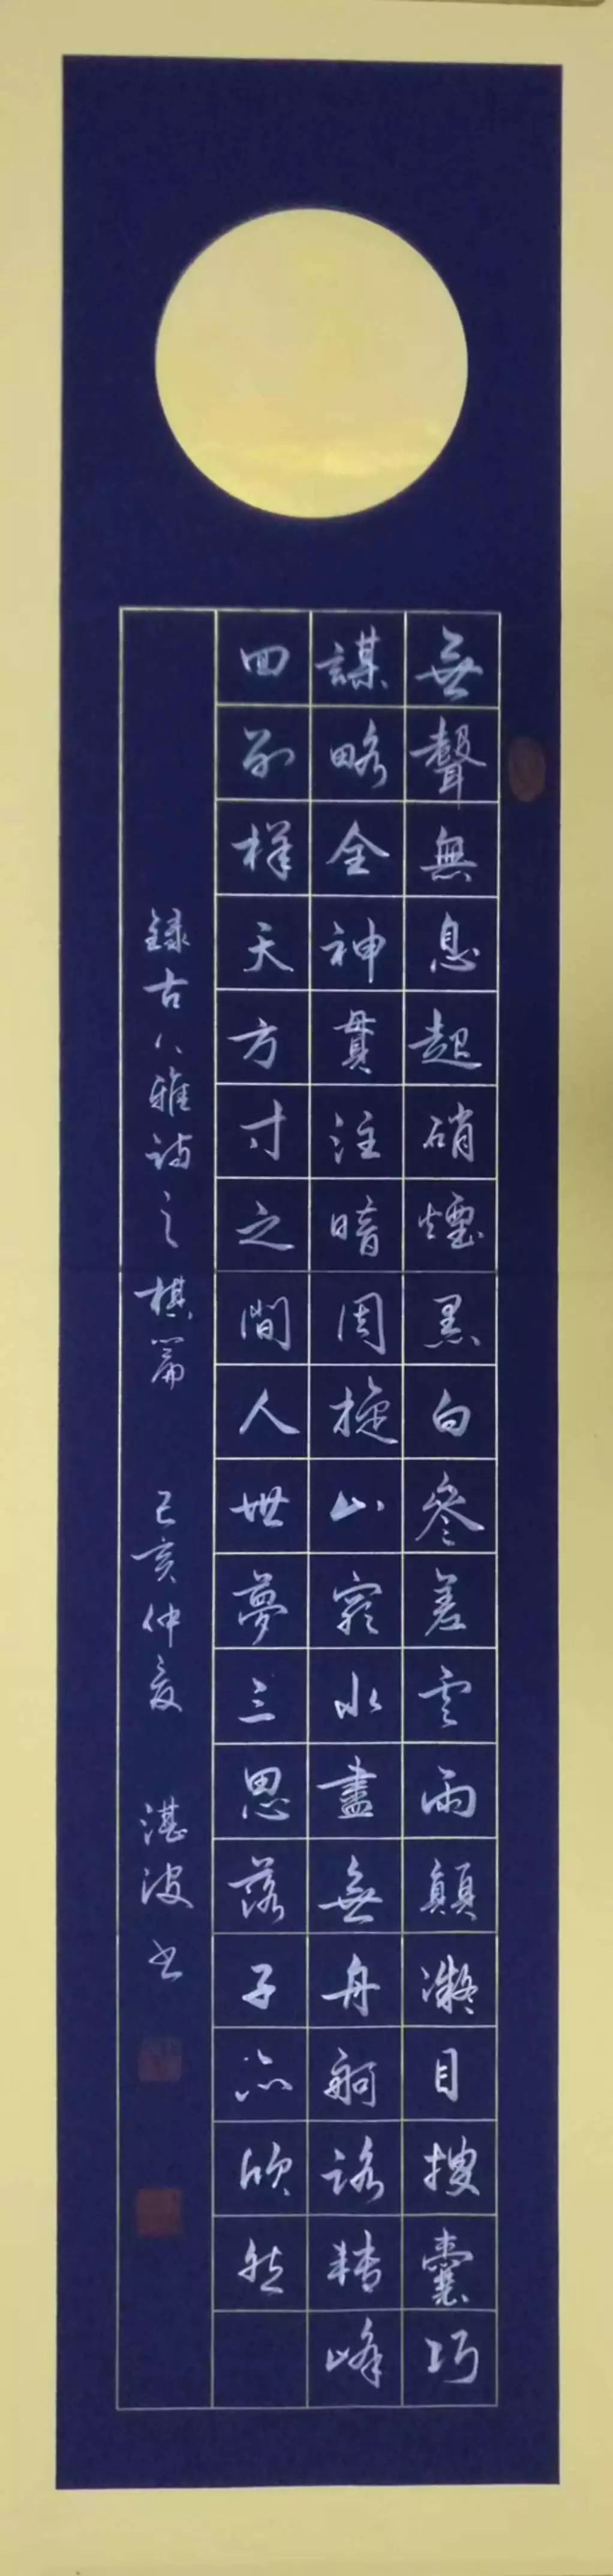 無聲無息起硝煙黑白參差雲雨顛凝目搜囊巧
謀略全神貫注暗周旋山窮水盡無舟舸路轉峰
回別樣天方寸之間人世夢三思落子亦欣然
録古八雅詩之棋篇 己亥仲夏 湛波书